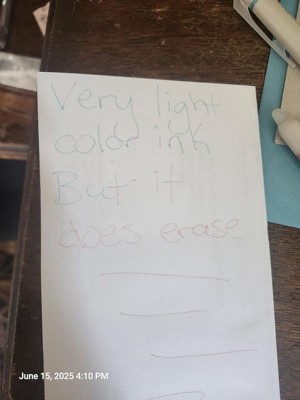 Very light
color ink
But it
does erase
June 15, 2025 4:10 PM